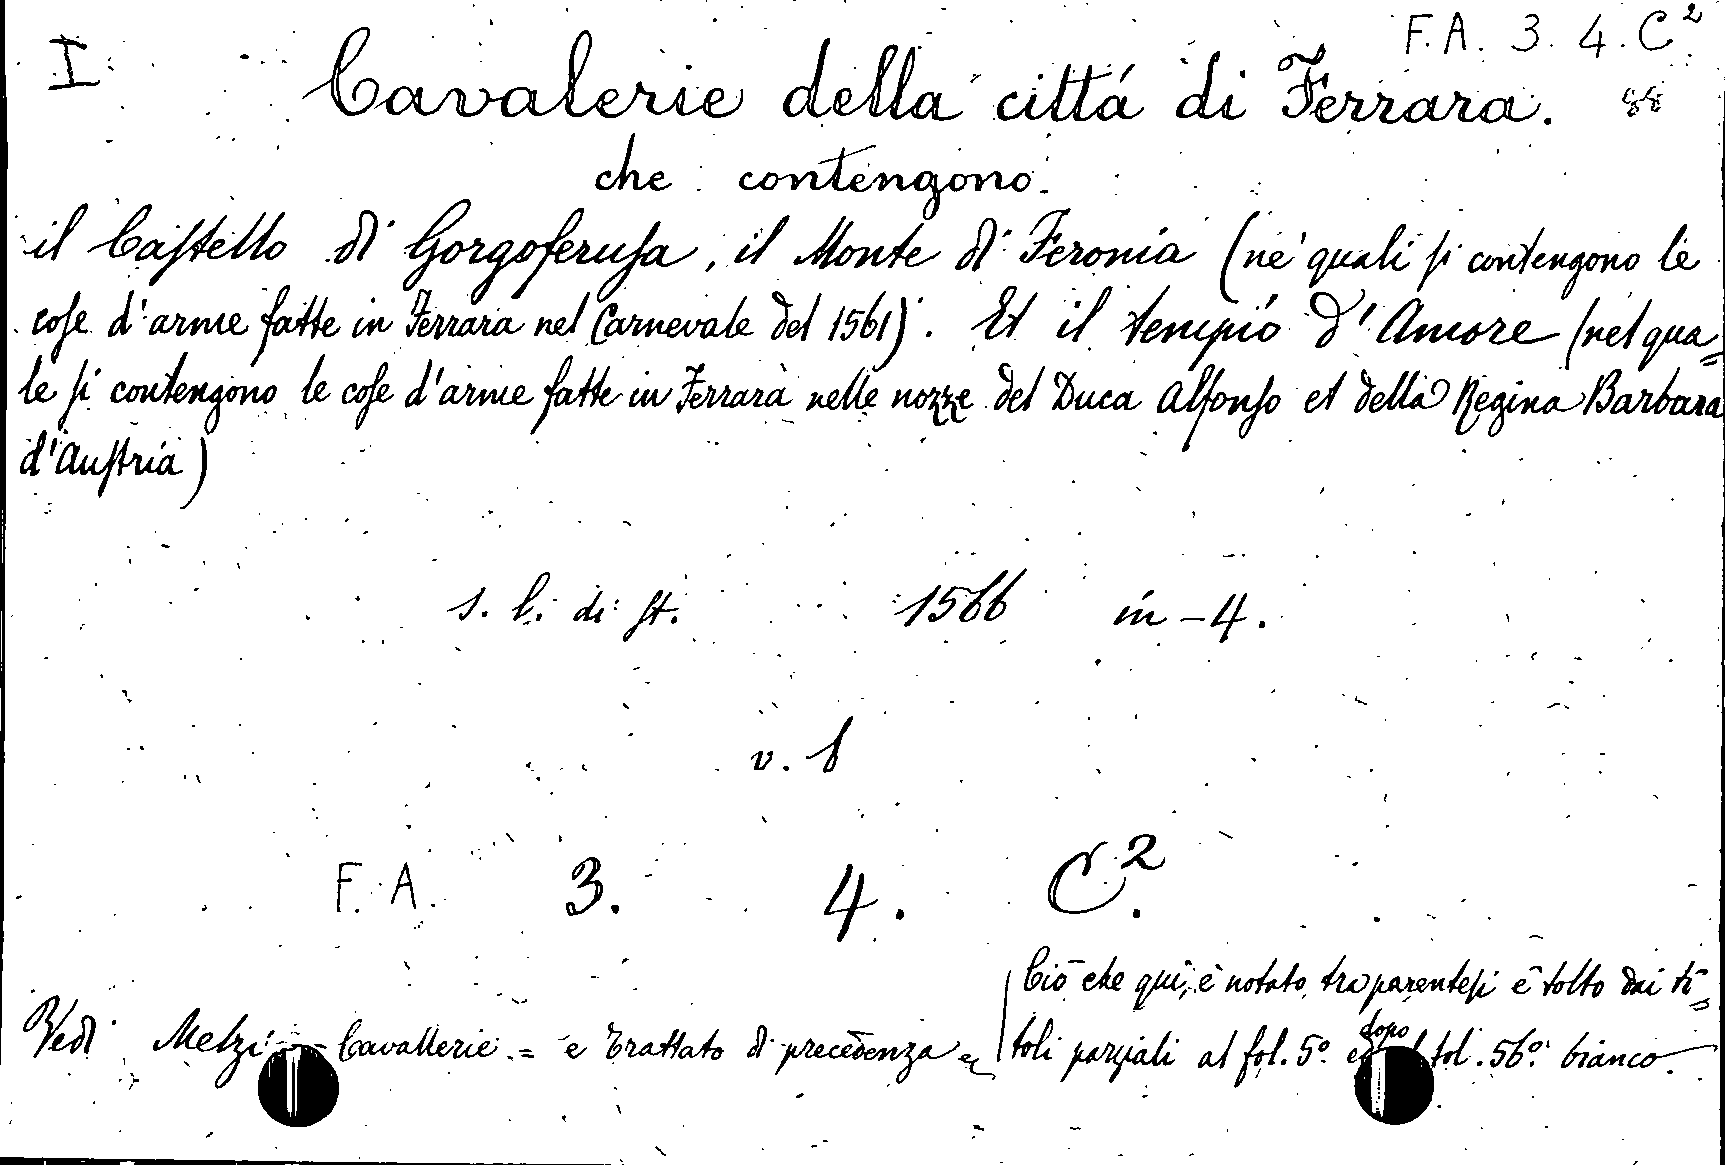 I F. A. 3. 4. C²
Cavalerie della cittá di Ferrara. 88
che contengono.
il Caſtello di Gorgoferuſa, il Monte di Feronia (ne' quali ſi contengono le
coſe d'arme fatte in Ferrara nel Carnevale del 1561). Et il tempio d'Amore (nel qua=
le ſi contengono le coſe d'arme fatte in Ferrara nelle nozze del Duca Alfonſo et della Regina Barbara
d'Auſtria)
s. l. di ſt. 1566 in-4.
v. b
F. A. 3. 4. C².
Ciò che qui è notato tra parenteſi è tolto dai ti=
Vedi Melzi = Cavallerie = e Trattato di precedenza = toli parziali al fol. 5º e dopo il fol. 56º bianco.